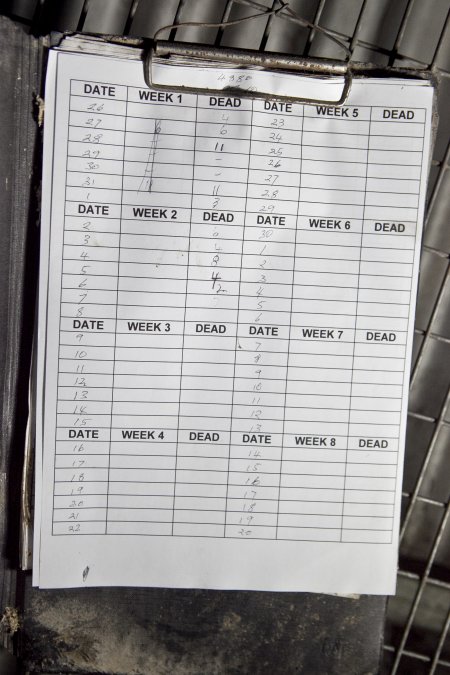 4380
DATE WEEK 1 DEAD DATE WEEK 5 DEAD
26 4 23
27 6 24
28 11 25
29 - 26
30 - 27
31 11 28
1 3 29
DATE WEEK 2 DEAD DATE WEEK 6 DEAD
2 6 30
3 4 1
4 8 2
5 4 3
6 4
7 5
8 6
DATE WEEK 3 DEAD DATE WEEK 7 DEAD
9 7
10 8
11 9
12 10
13 11
14 12
15 13
DATE WEEK 4 DEAD DATE WEEK 8 DEAD
16 14
17 15
18 16
19 17
20 18
21 19
22 20